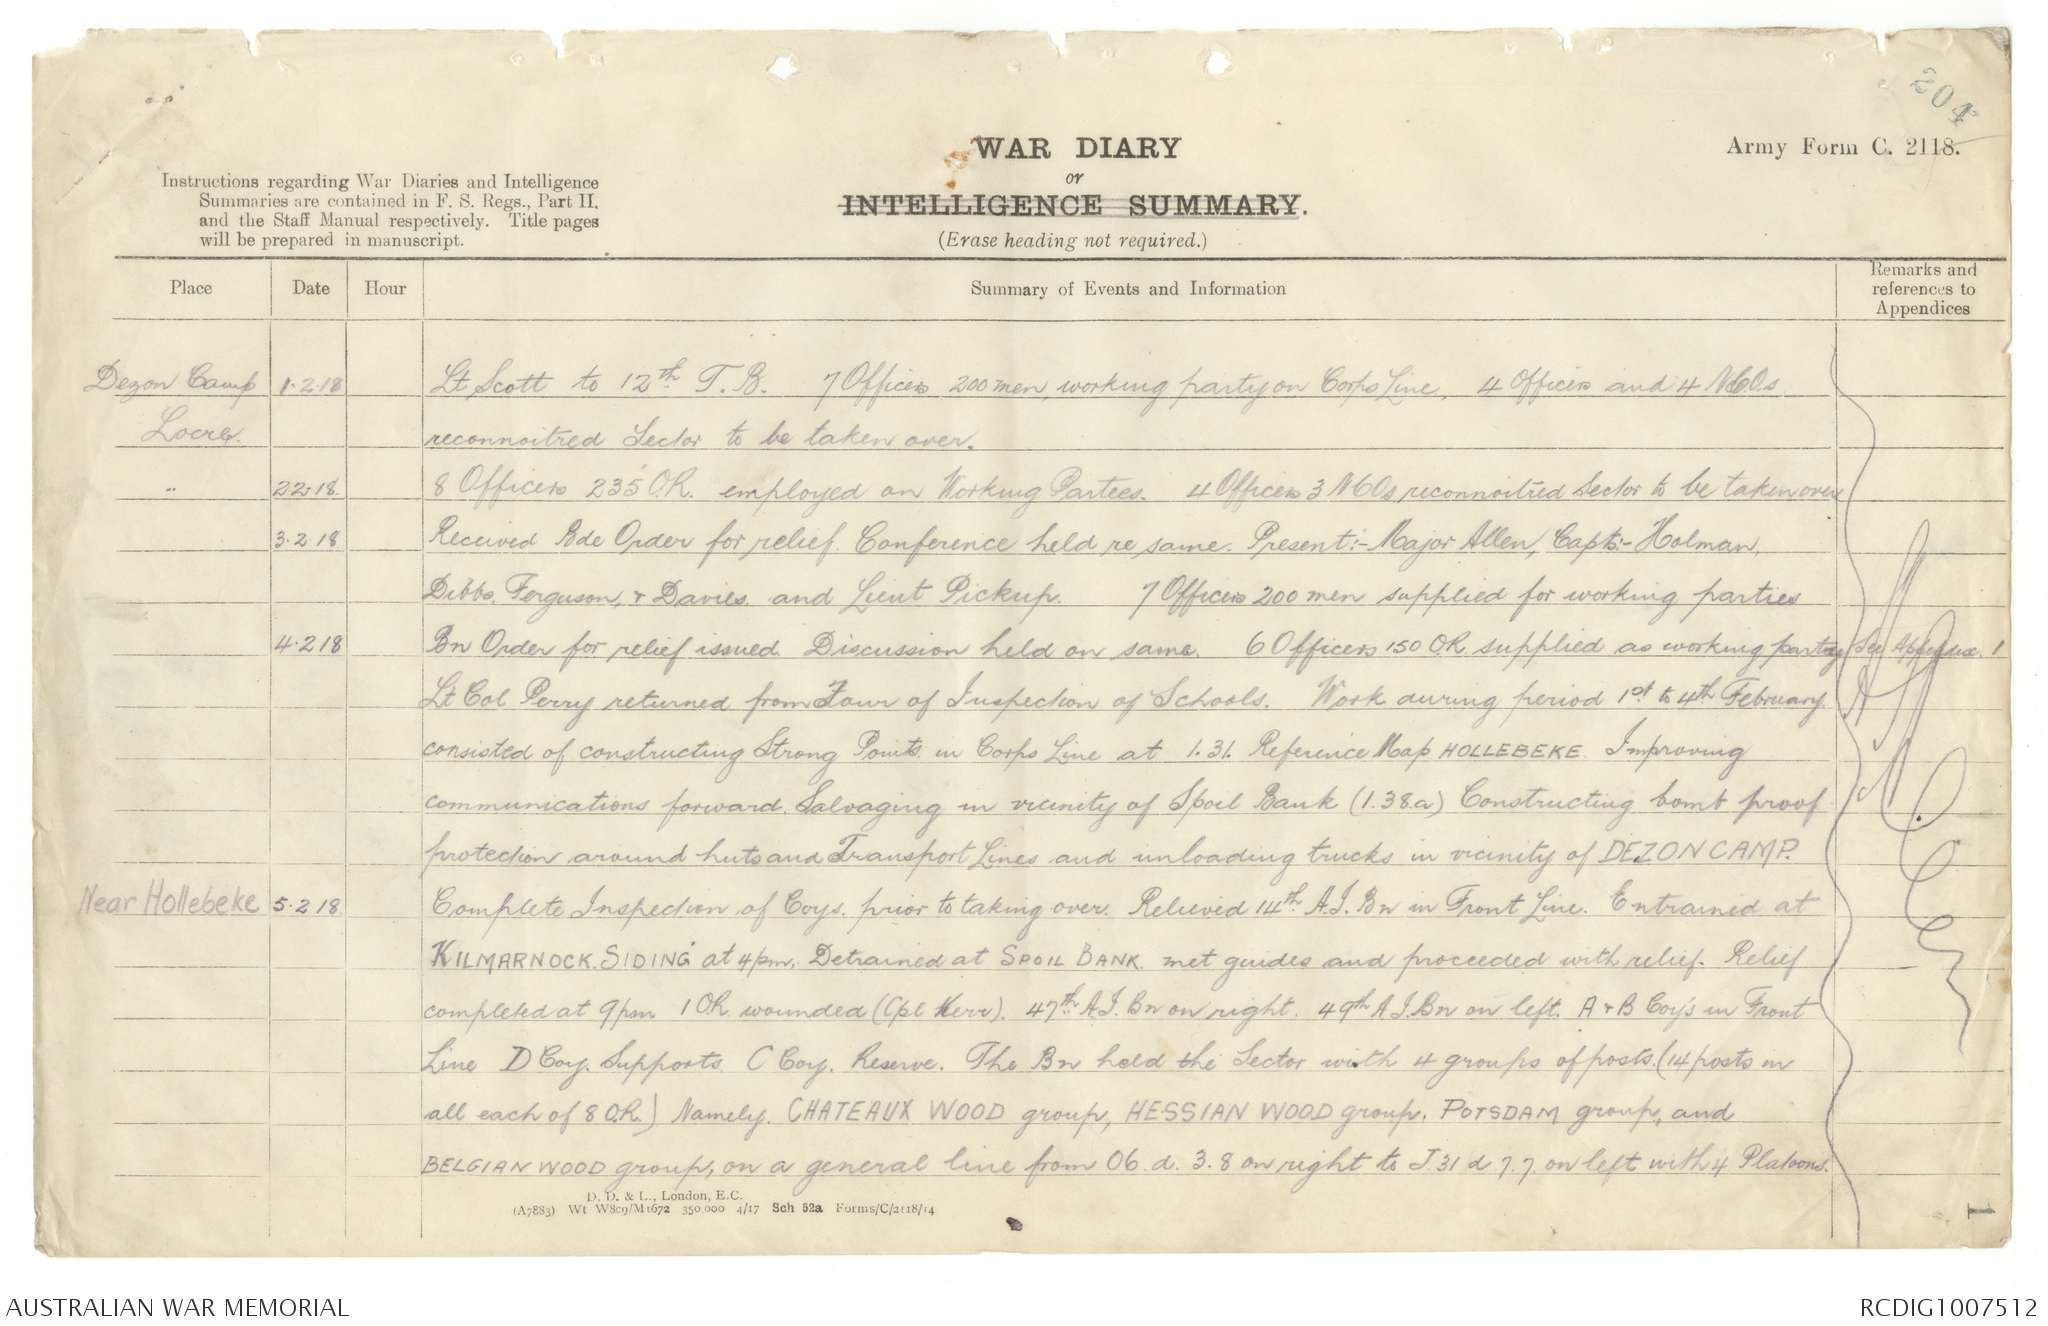 204
WAR DIARY
or
INTELLIGENCE SUMMARY.
(Erase heading not required.)
Army Form C. 2118.
Instructions regarding War Diaries and Intelligence
Summaries are contained in F. S. Regs., Part II,
and the Staff Manual respectively. Title pages
will be prepared in manuscript.
Place Date Hour Summary of Events and Information Remarks and
references to
Appendices
Dezon Camp 1.2.18 Lt Scott to 12th T.B. 7 Officers 200 men, working party on Corps Line. 4 Officers and 4 NCOs
Locre. reconnoitred Sector to be taken over.
" 2.2.18. 8 Officers 235 O.R. employed on Working Partees. 4 Officers 3 NCOs reconnoitred Sector to be taken over
3.2.18 Received Bde Order for relief. Conference held re same. Present:- Major Allen, Capts:- Holman,
Dibbs, Ferguson, & Davies. and Lieut Pickup. 7 Officers 200 men supplied for working parties
4.2.18 Bn Order for relief issued. Discussion held on same. 6 Officers 150 O.R. supplied as working parties See Appendix. 1
Lt Col Perry returned from Tour of Inspection of Schools. Work during period 1st to 4th February
consisted of constructing Strong Points in Corps Line at 1.31. Reference Map HOLLEBEKE. Improving
communications forward. Salvaging in vicinity of Spoil Bank (1.38.a) Constructing bomb proof
protection around huts and Transport Lines and unloading trucks in vicinity of DEZON CAMP.
Near Hollebeke 5.2.18 Complete Inspection of Coys. prior to taking over. Relieved 14th A.I. Bn in Front Line. Entrained at
KILMARNOCK. SIDING at 4pm. Detrained at SPOIL BANK. met guides and proceeded with relief. Relief
completed at 9pm 1 O.R. wounded (Cpl Kerr). 47th A.I. Bn on right. 49th A.I. Bn on left. A & B Coy's in Front
Line D Coy. Supports C Coy. Reserve. The Bn held the Sector with 4 groups of posts. (14 posts in
all each of 8 O.R.) Namely. CHATEAUX WOOD group, HESSIAN WOOD group. POTSDAM group, and
BELGIAN WOOD group, on a general line from O6. d. 3.8 on right to J.31 d 7.7 on left with 4 Platoons.
D. D. & L., London, E.C.
(A7883) Wt W809/M1672 350,000 4/17 Sch 52a Forms/C/2118/14
1
AUSTRALIAN WAR MEMORIAL
RCDIG1007512